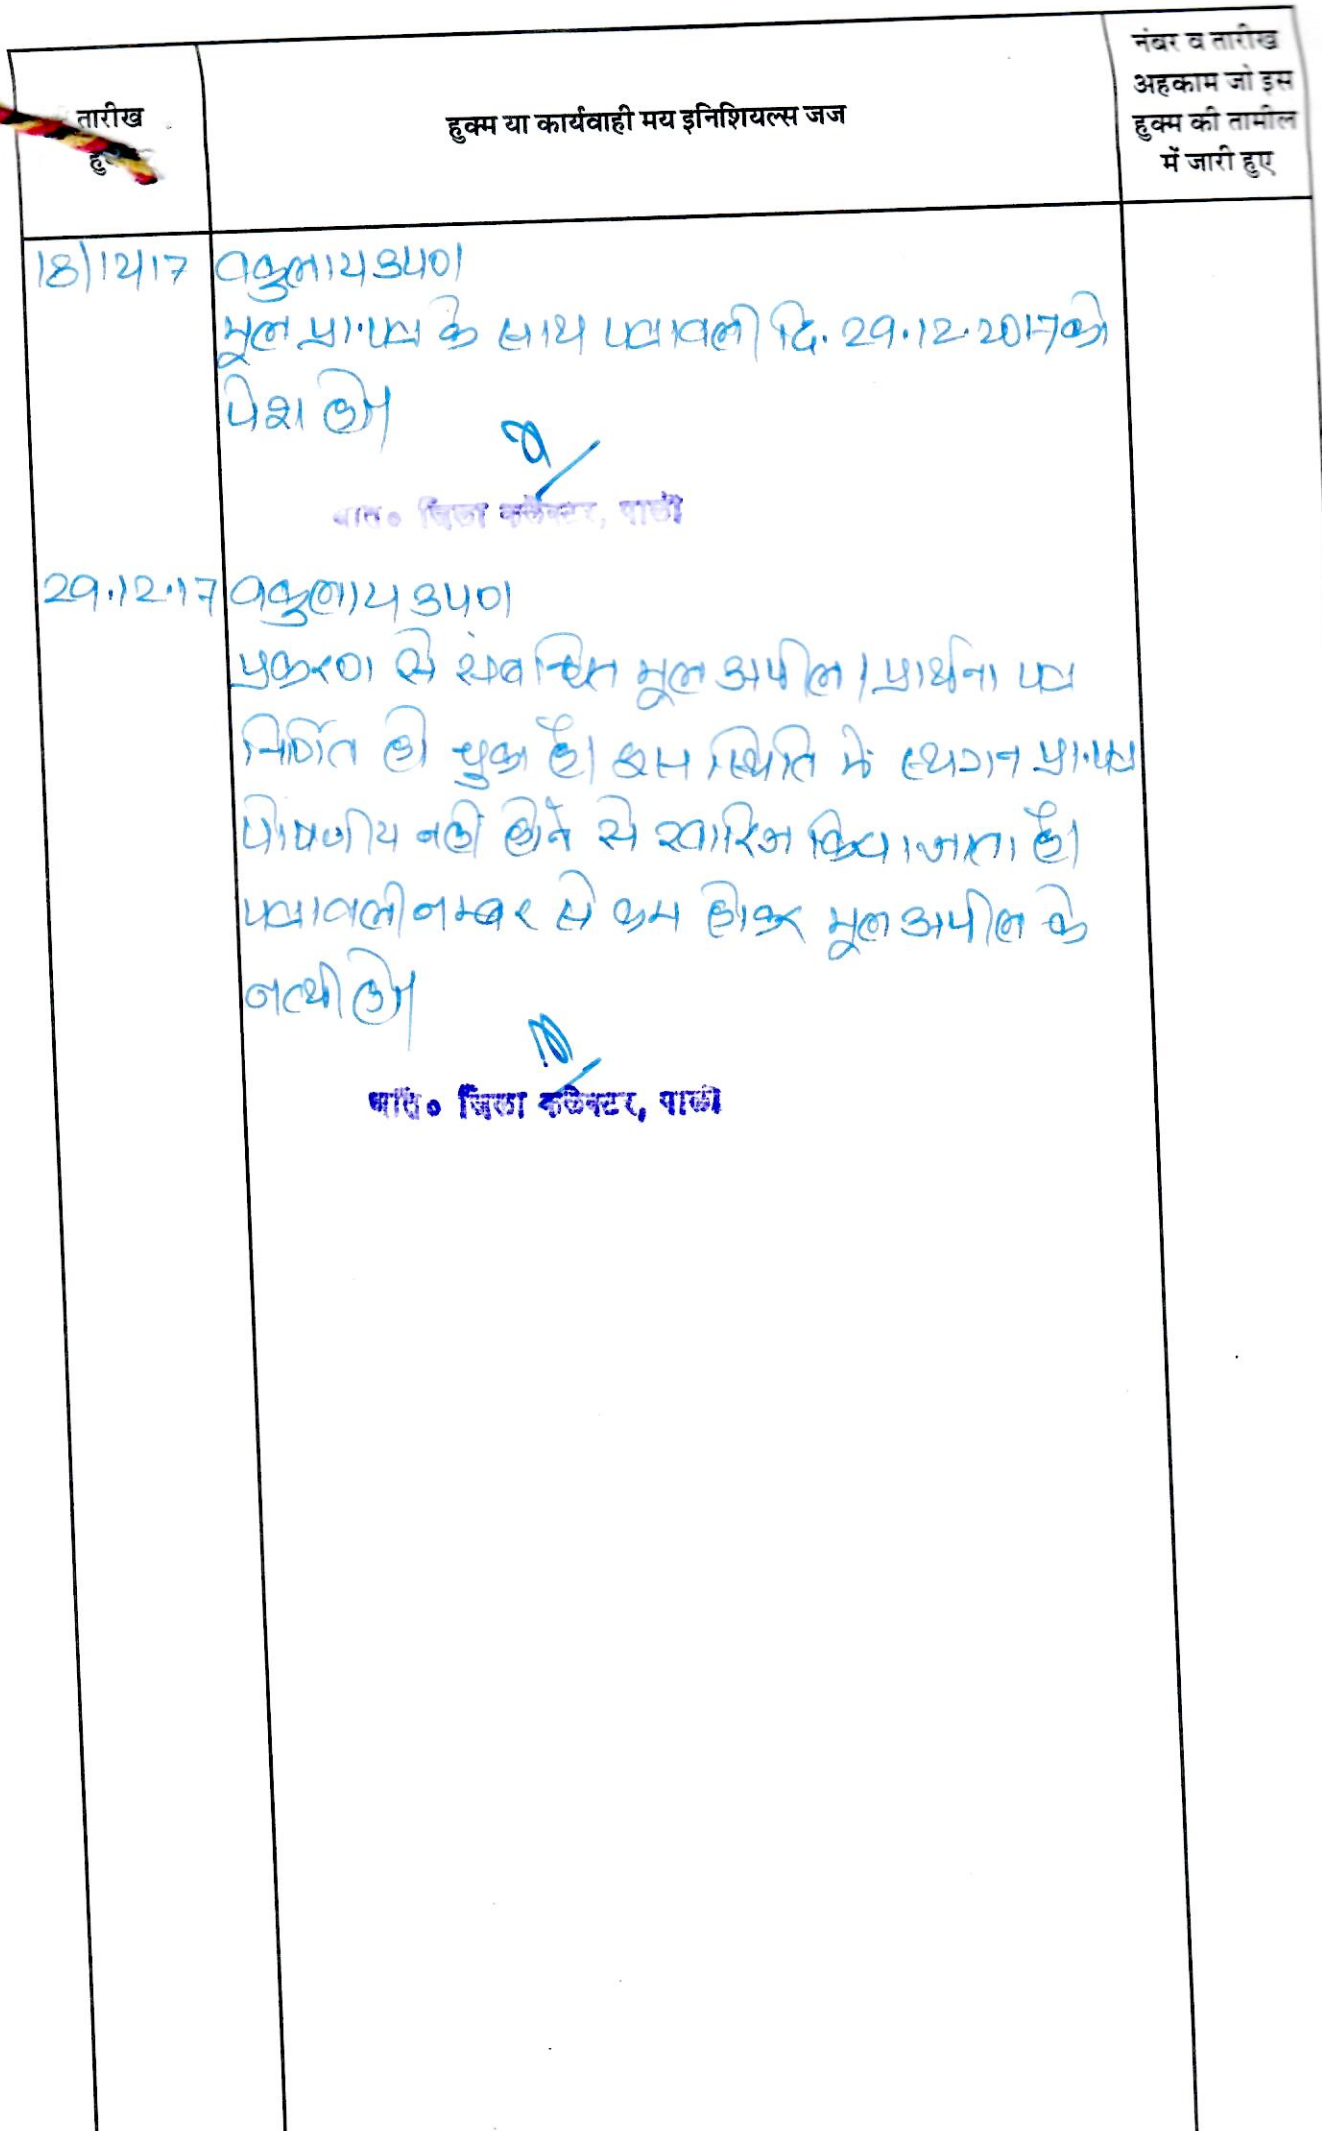 तारीख
हु
हुक्म या कार्यवाही मय इनिशियल्स जज
नंबर व तारीख
अहकाम जो इस
हुक्म की तामील
में जारी हुए
18/12/17 वकुलाय उप०।
मूल प्रा.पत्र के साथ पत्रावली दि. 29.12.2017 को
पेश हो।
अति० जिला कलेक्टर, पाली
29.12.17 वकुलाय उप०।
प्रकरण से संबन्धित मूल अपील/प्रार्थना पत्र
निर्णित हो चुका है। इस स्थिति में स्थगन प्रा.पत्र
पोषणीय नहीं होने से खारिज किया जाता है।
पत्रावली नम्बर से कम होकर मूल अपील के
नत्थी हो।
अति० जिला कलेक्टर, पाली